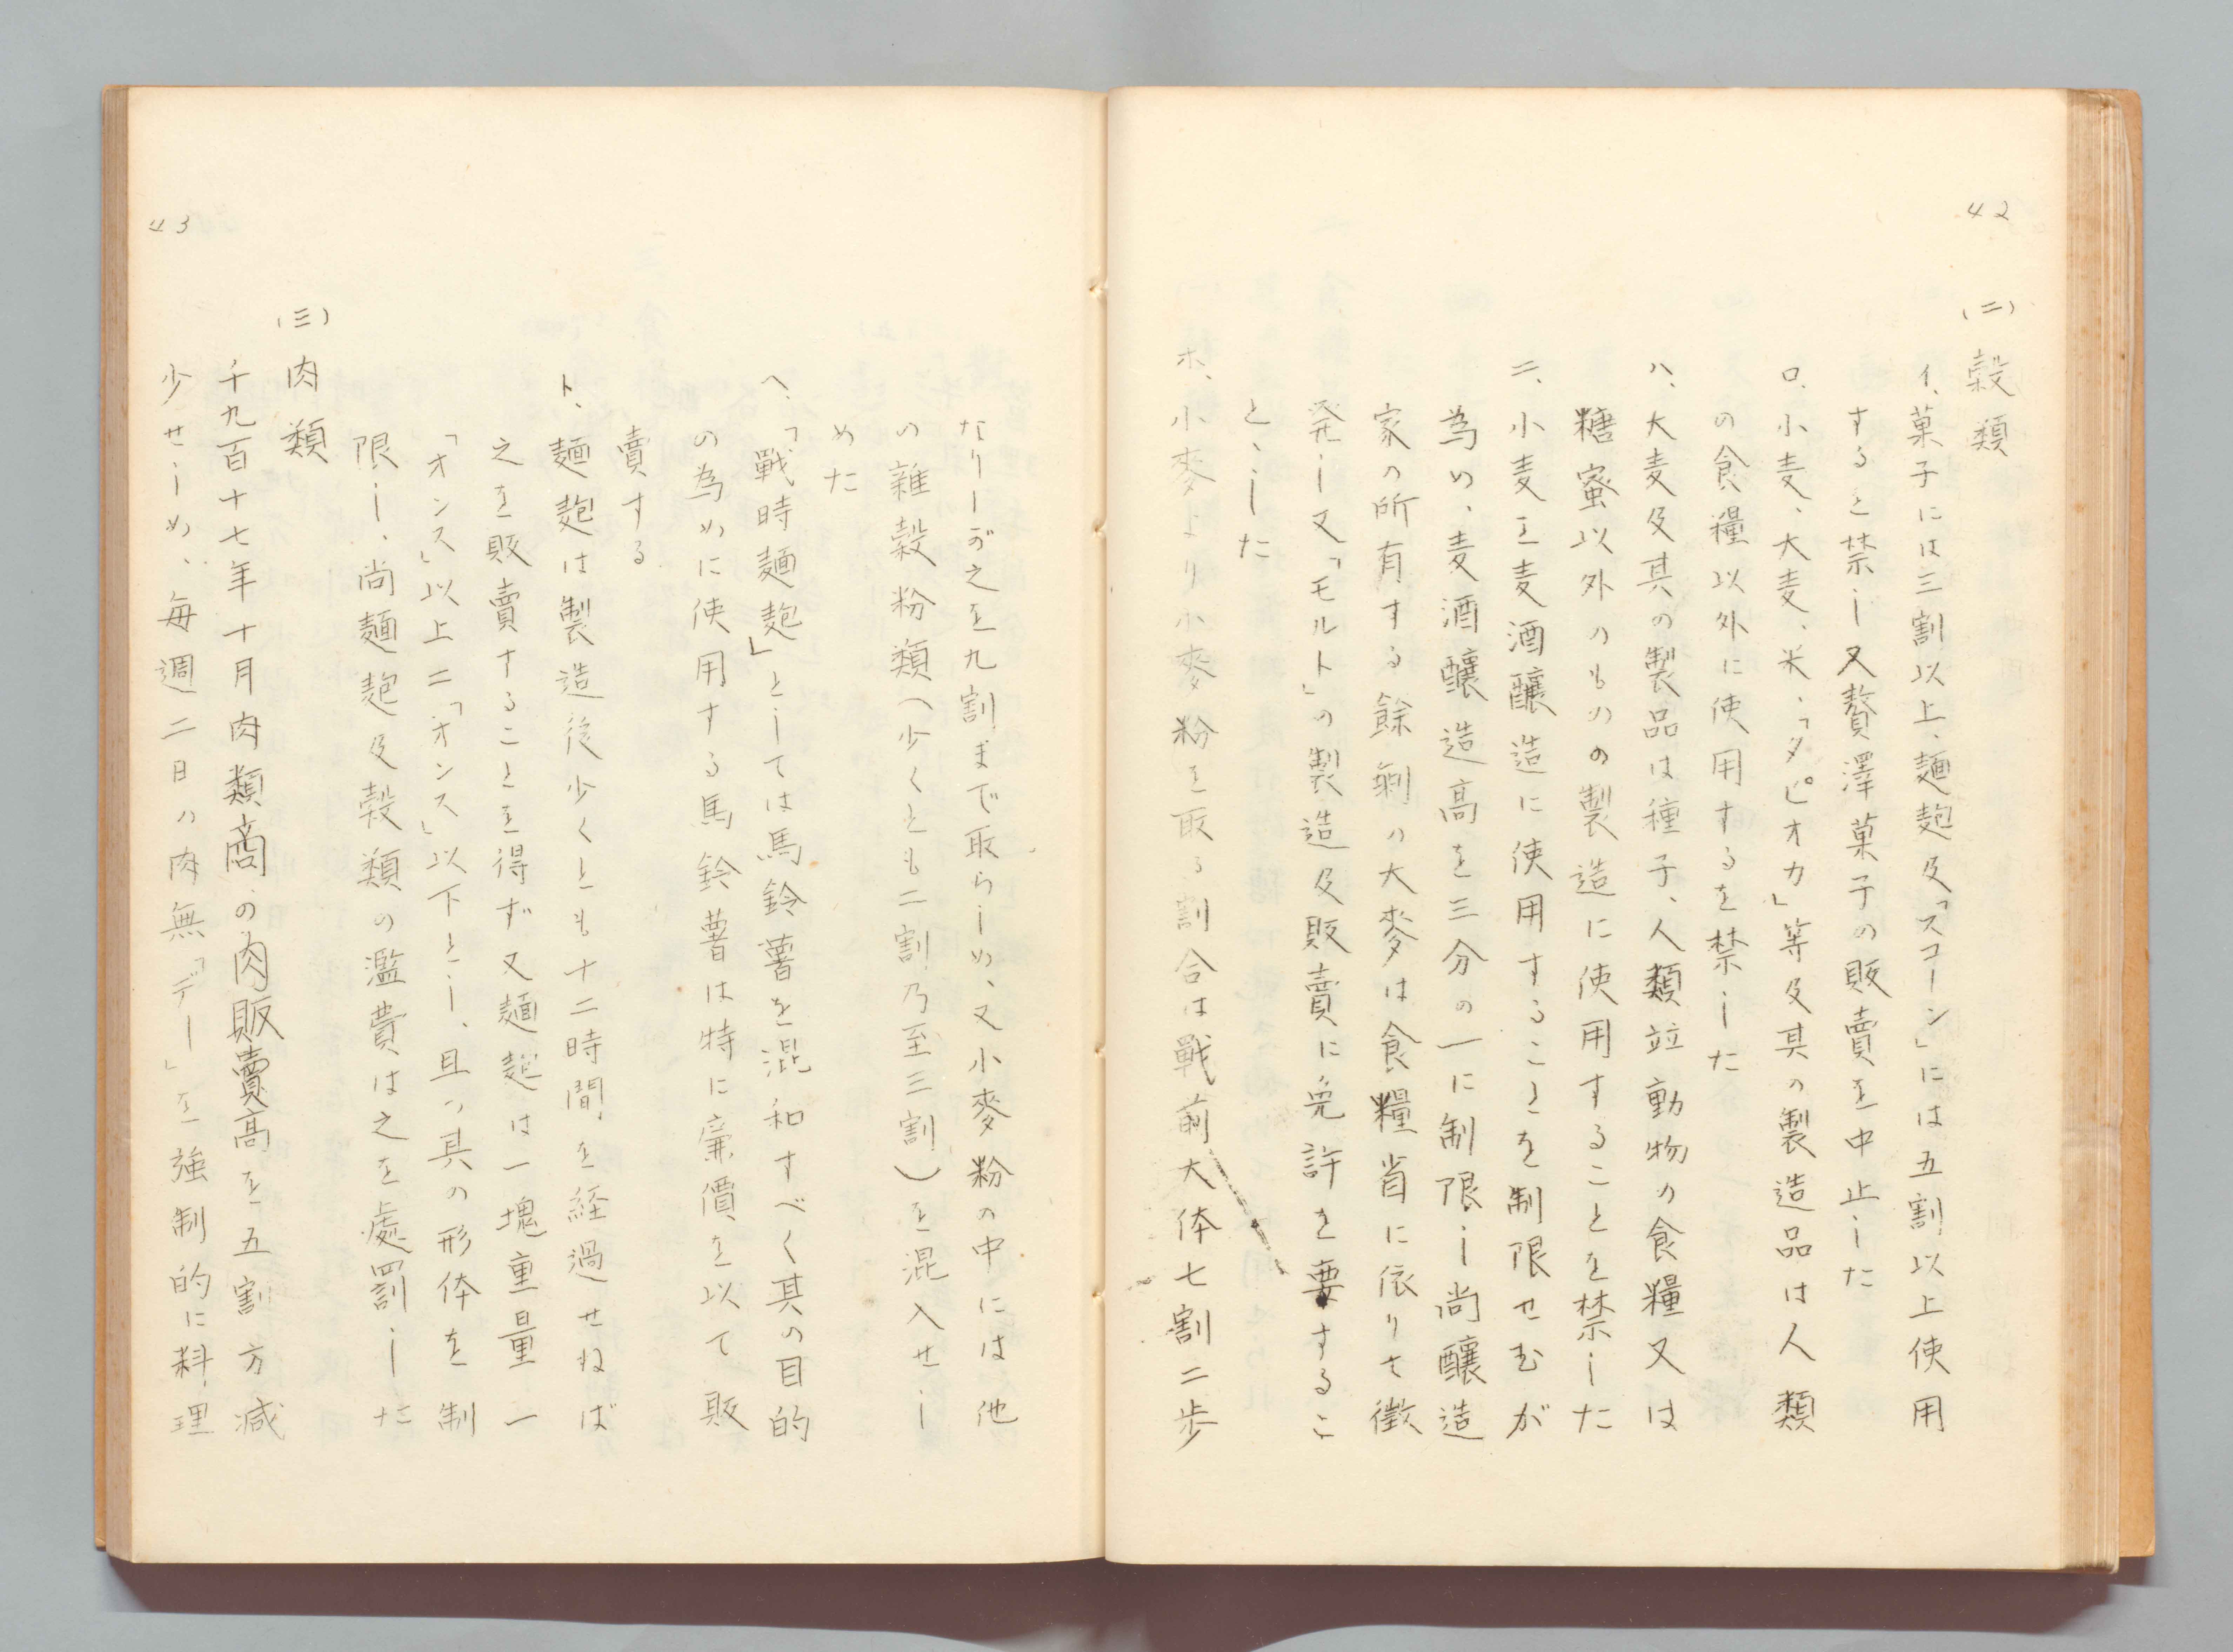 42
(二)穀類
イ、菓子には三割以上、麺麭及「スコーン」には五割以上使用
するを禁し又贅澤菓子の販賣を中止した
ロ、小麦、大麦、米、「タピオカ」等及其の製造品は人類
の食糧以外に使用するを禁した
ハ、大麦及其の製品は種子、人類竝動物の食糧又は
糖蜜以外のものの製造に使用することを禁した
ニ、小麦を麦酒醸造に使用することを制限せむが
為め、麦酒醸造高を三分の一に制限し尚醸造
家の所有する餘剰の大麥は食糧省に依りて徴
発し又「モルト」の製造及販賣に免許を要するこ
とゝした
ホ、小麥より小麥粉を取る割合は戰前大体七割二歩
なりしが之を九割まで取らしめ、又小麥粉の中には他
の雜穀粉類(少くとも二割乃至三割)を混入せし
めた
ヘ、「戰時麺麭」としては馬鈴薯を混和すべく其の目的
の為めに使用する馬鈴薯は特に廉價を以て販
賣する
ト、麺麭は製造後少くとも十二時間を経過せねば
之を販賣することを得ず又麺麭は一塊重量一
「オンス」以上二「オンス」以下とし、且つ其の形体を制
限し、尚麺麭及穀類の濫費は之を處罰した
(三)肉類
千九百十七年十月肉類商の肉販賣高を五割方減
少せしめ、毎週二日の肉無「デー」を強制的に料理
43